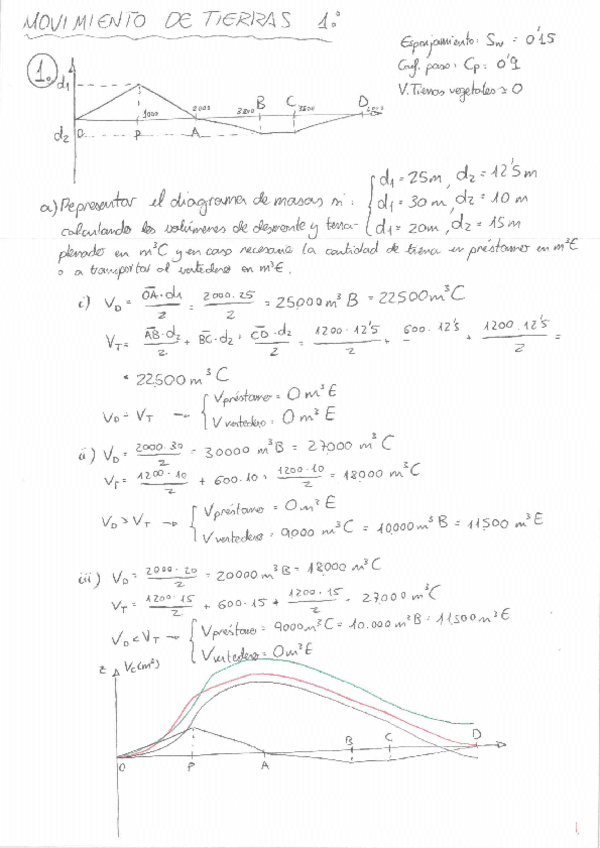 MOVIMIENTO DE TIERRAS 1º
Esponjamiento: Sw = 0'15
Coef. paso: Cp: 0'9
V. Tierras vegetales ≈ 0
1.
d1
d2
0 P 1000 2000 A 3200 B C 3800 D 5000
a) Representar el diagrama de masas si: { d1 = 25m, d2 = 12'5 m
d1 = 30 m, d2 = 10 m
calculando los volúmenes de desmonte y terra- d1 = 20m, d2 = 15m
plenado en m³C y en caso necesario la cantidad de tierra en préstamos en m³E
o a transportar al vertedero en m³E.
i) VD = OA·d1 / 2 = 2000·25 / 2 = 25000 m³ B = 22500 m³ C
VT = AB·d2 / 2 + BC·d2 + CD·d2 / 2 = 1200·12'5 / 2 + 600·12'5 + 1200·12'5 / 2 =
= 22500 m³ C
VD = VT → { Vpréstamo = 0 m³E
Vvertedero = 0 m³ E
ii) VD = 2000·30 / 2 = 30000 m³B = 27000 m³C
VT = 1200·10 / 2 + 600·10 + 1200·10 / 2 = 18000 m³C
VD > VT → { Vpréstamo = 0 m³E
Vvertedero = 9000 m³C = 10,000 m³B = 11500 m³E
iii) VD = 2000·20 / 2 = 20000 m³B = 18000 m³C
VT = 1200·15 / 2 + 600·15 + 1200·15 / 2 = 27000 m³C
VD < VT → { Vpréstamo = 9000m³C = 10.000 m³B = 11500 m³E
Vvertedero = 0 m³E
z VC(m³)
0 P A B C D
1